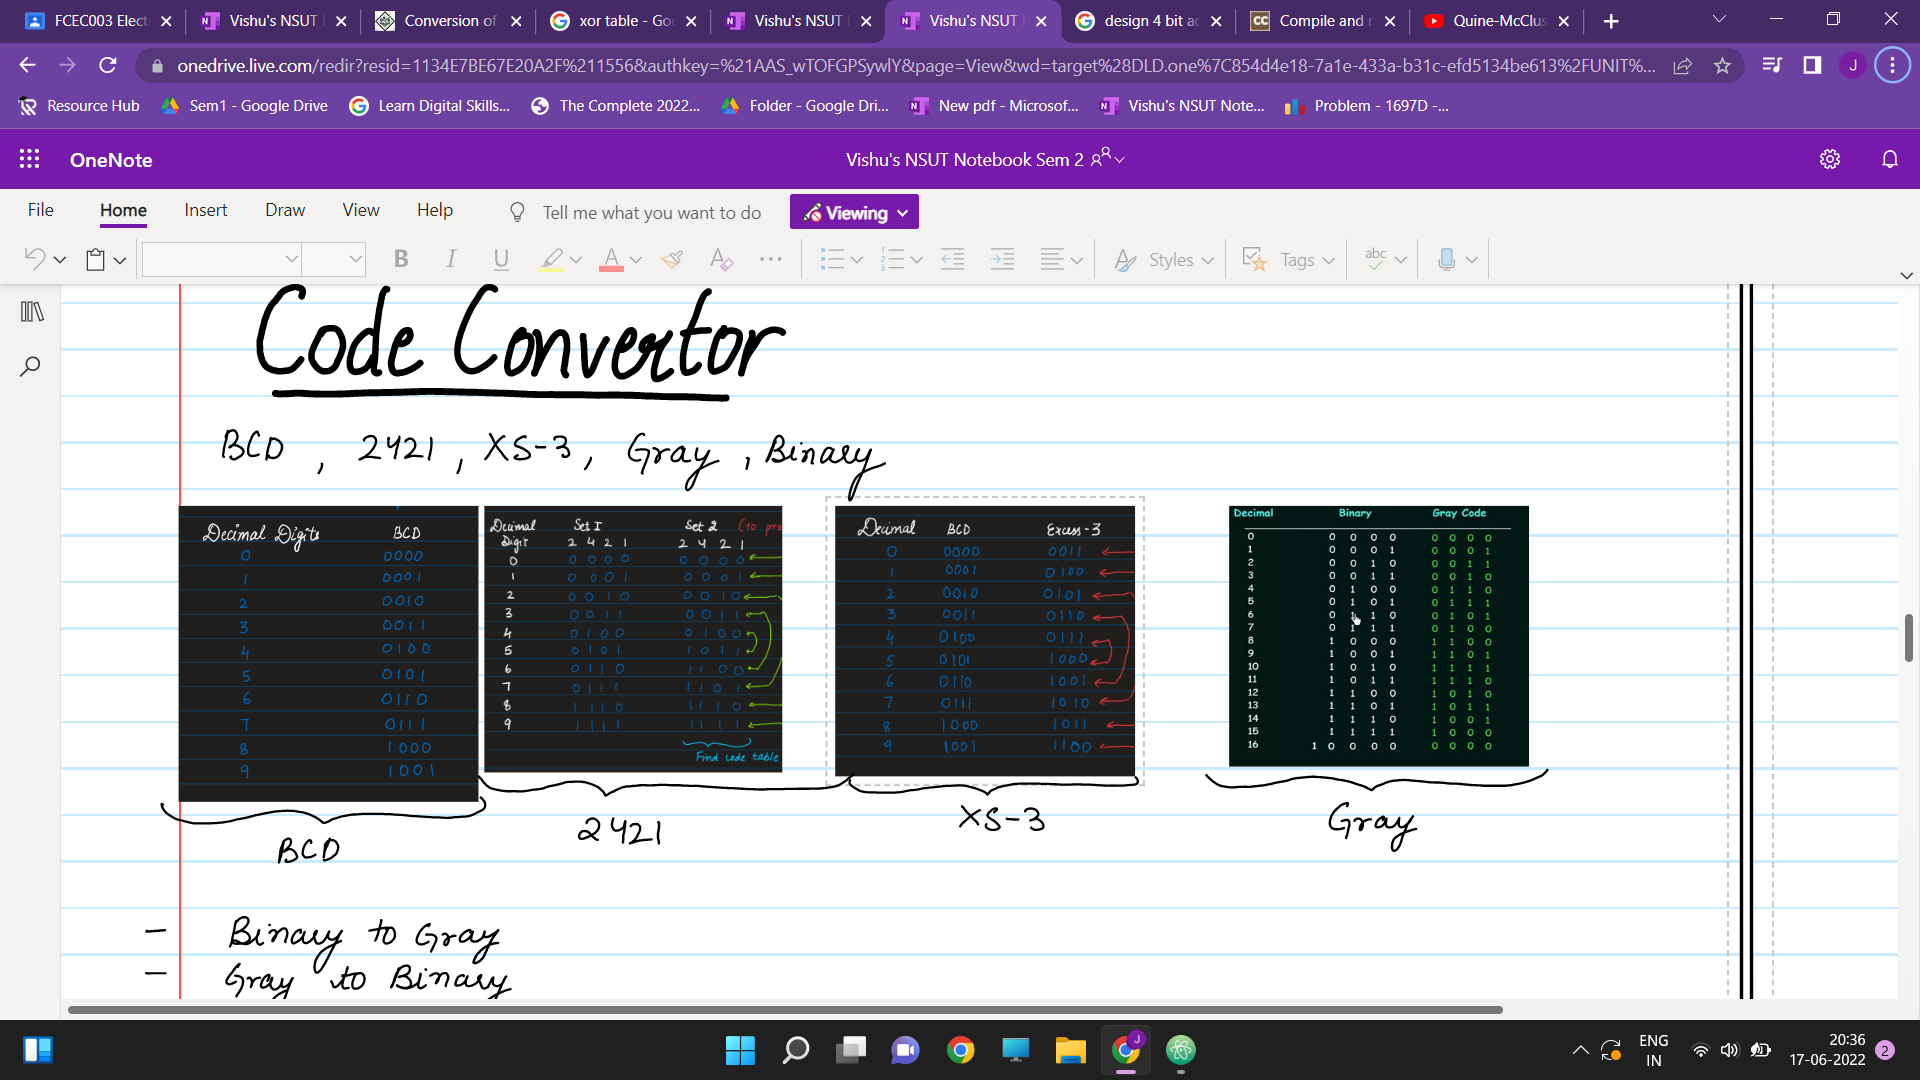 FCEC003 Elect
Vishu's NSUT
Conversion of
xor table - Goo
Vishu's NSUT
Vishu's NSUT
design 4 bit ad
Compile and r
Quine-McClus
onedrive.live.com/redir?resid=1134E7BE67E20A2F%211556&authkey=%21AAS_wTOFGPSywlY&page=View&wd=target%28DLD.one%7C854d4e18-7a1e-433a-b31c-efd5134be613%2FUNIT%...
Resource Hub
Sem1 - Google Drive
Learn Digital Skills...
The Complete 2022...
Folder - Google Dri...
New pdf - Microsof...
Vishu's NSUT Note...
Problem - 1697D -...
OneNote
Vishu's NSUT Notebook Sem 2
File Home Insert Draw View Help
Tell me what you want to do
Viewing
B I U A
Styles
Tags
abc
Code Convertor
BCD , 2421 , XS-3 , Gray , Binary
Decimal Digits BCD
0 0000
1 0001
2 0010
3 0011
4 0100
5 0101
6 0110
7 0111
8 1000
9 1001
BCD
Decimal Digit Set I Set 2
2 4 2 1 2 4 2 1
0 0 0 0 0 0 0 0 0
1 0 0 0 1 0 0 0 1
2 0 0 1 0 0 0 1 0
3 0 0 1 1 0 0 1 1
4 0 1 0 0 0 1 0 0
5 0 1 0 1 1 0 1 1
6 0 1 1 0 1 1 0 0
7 0 1 1 1 1 1 0 1
8 1 1 1 0 1 1 1 0
9 1 1 1 1 1 1 1 1
Find code table
2421
Decimal BCD Excess-3
0 0000 0011
1 0001 0100
2 0010 0101
3 0011 0110
4 0100 0111
5 0101 1000
6 0110 1001
7 0111 1010
8 1000 1011
9 1001 1100
XS-3
Decimal Binary Gray Code
0 0 0 0 0 0 0 0 0
1 0 0 0 1 0 0 0 1
2 0 0 1 0 0 0 1 1
3 0 0 1 1 0 0 1 0
4 0 1 0 0 0 1 1 0
5 0 1 0 1 0 1 1 1
6 0 1 1 0 0 1 0 1
7 0 1 1 1 0 1 0 0
8 1 0 0 0 1 1 0 0
9 1 0 0 1 1 1 0 1
10 1 0 1 0 1 1 1 1
11 1 0 1 1 1 1 1 0
12 1 1 0 0 1 0 1 0
13 1 1 0 1 1 0 1 1
14 1 1 1 0 1 0 0 1
15 1 1 1 1 1 0 0 0
16 1 0 0 0 0 0 0 0 0
Gray
- Binary to Gray
- Gray to Binary
ENG
IN
20:36
17-06-2022
2